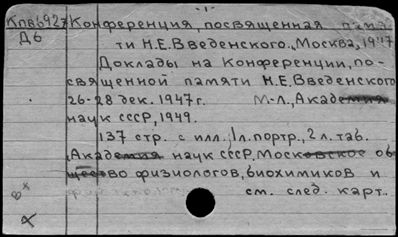 -1-
Кпв6927 Конференция, посвященная памя
Д6 ти Н.Е.Введенского, Москва, 1947
Доклады на Конференции, по-
священной памяти Н.Е.Введенского
26-28 дек. 1947г. М-Л., Академия
наук СССР, 1949.
137 стр. с илл. 1л. портр., 2 л. таб.
Академия наук СССР, Московское об
щество физиологов, биохимиков и
см. след. карт.